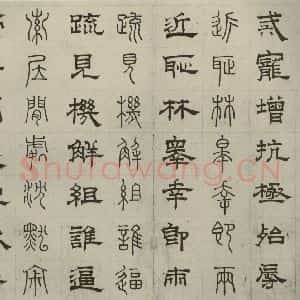 寵增抗極殆辱
近恥林皋幸即兩
近恥林皋幸即兩
疏見機解組誰逼
疏見機解組誰逼
索居閒處沈默寂
Shufawang.CN